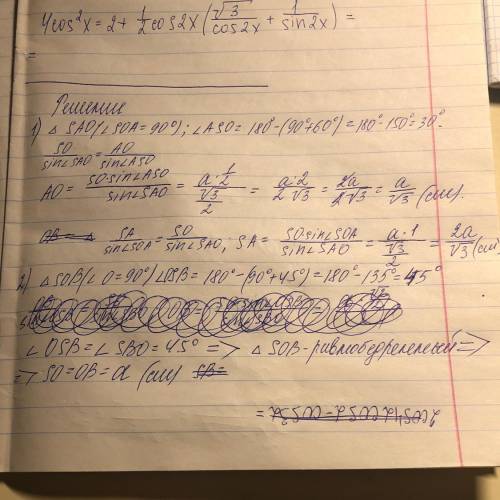 4cos²x = 2 + 1/2 cos2x (√3/cos2x + 1/sin2x) =
=
Решение
1) △ SAO (∠SOA = 90°); ∠ASO = 180° - (90°+60°) = 180° - 150° = 30°.
SO/sin∠SAO = AO/sin∠ASO
AO = SO·sin∠ASO/sin∠SAO = a·1/2 / √3/2 = a·2/2·√3 = 2a/2√3 = a/√3 (см).
SA/sin∠SOA = SO/sin∠SAO; SA = SO·sin∠SOA/sin∠SAO = a·1 / √3/2 = 2a/√3 (см)
2) △SOB (∠O = 90°) ∠OSB = 180° - (90°+45°) = 180° - 135° = 45°
∠OSB = ∠SBO = 45° => △ SOB - равнобедренный =>
=> SO = OB = a (см) SB =